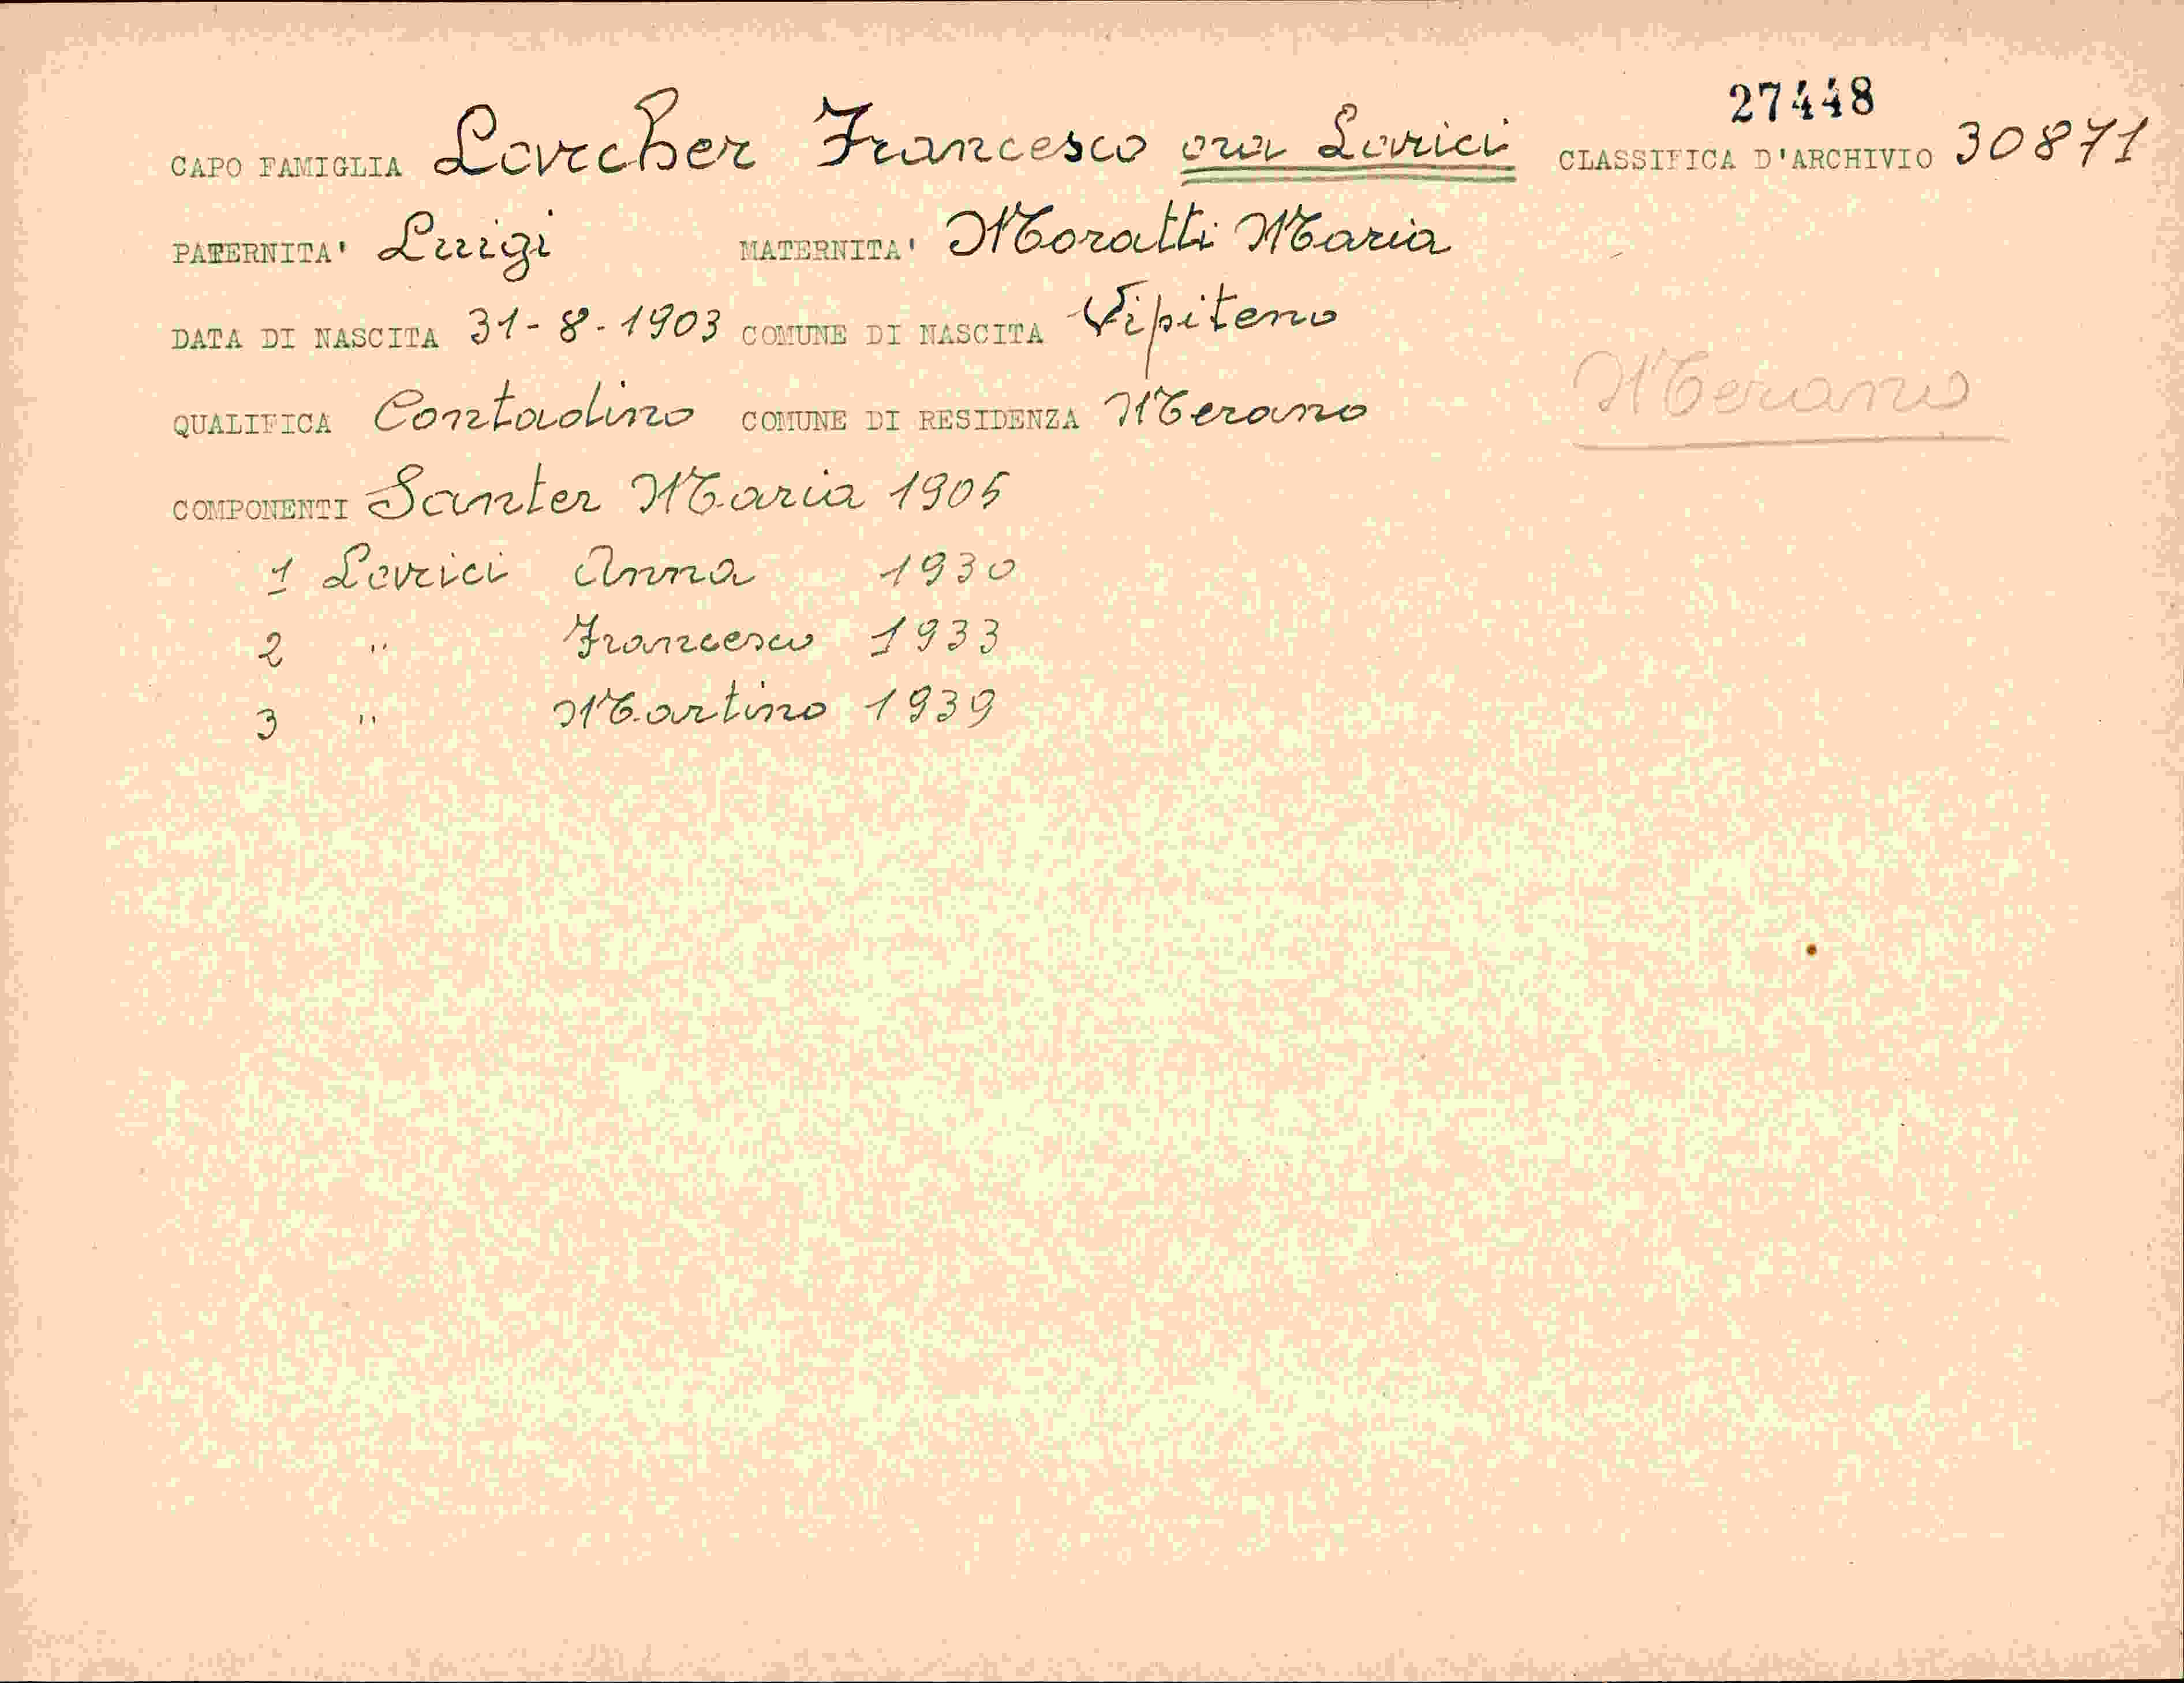 27448
CAPO FAMIGLIA Larcher Francesco ora Larici CLASSIFICA D'ARCHIVIO 30871
PATERNITA' Luigi MATERNITA' Moratti Maria
DATA DI NASCITA 31-8-1903 COMUNE DI NASCITA Vipiteno
QUALIFICA Contadino COMUNE DI RESIDENZA Merano
Merano
COMPONENTI Santer Maria 1905
1 Larici Anna 1930
2 " Francesco 1933
3 " Martino 1939